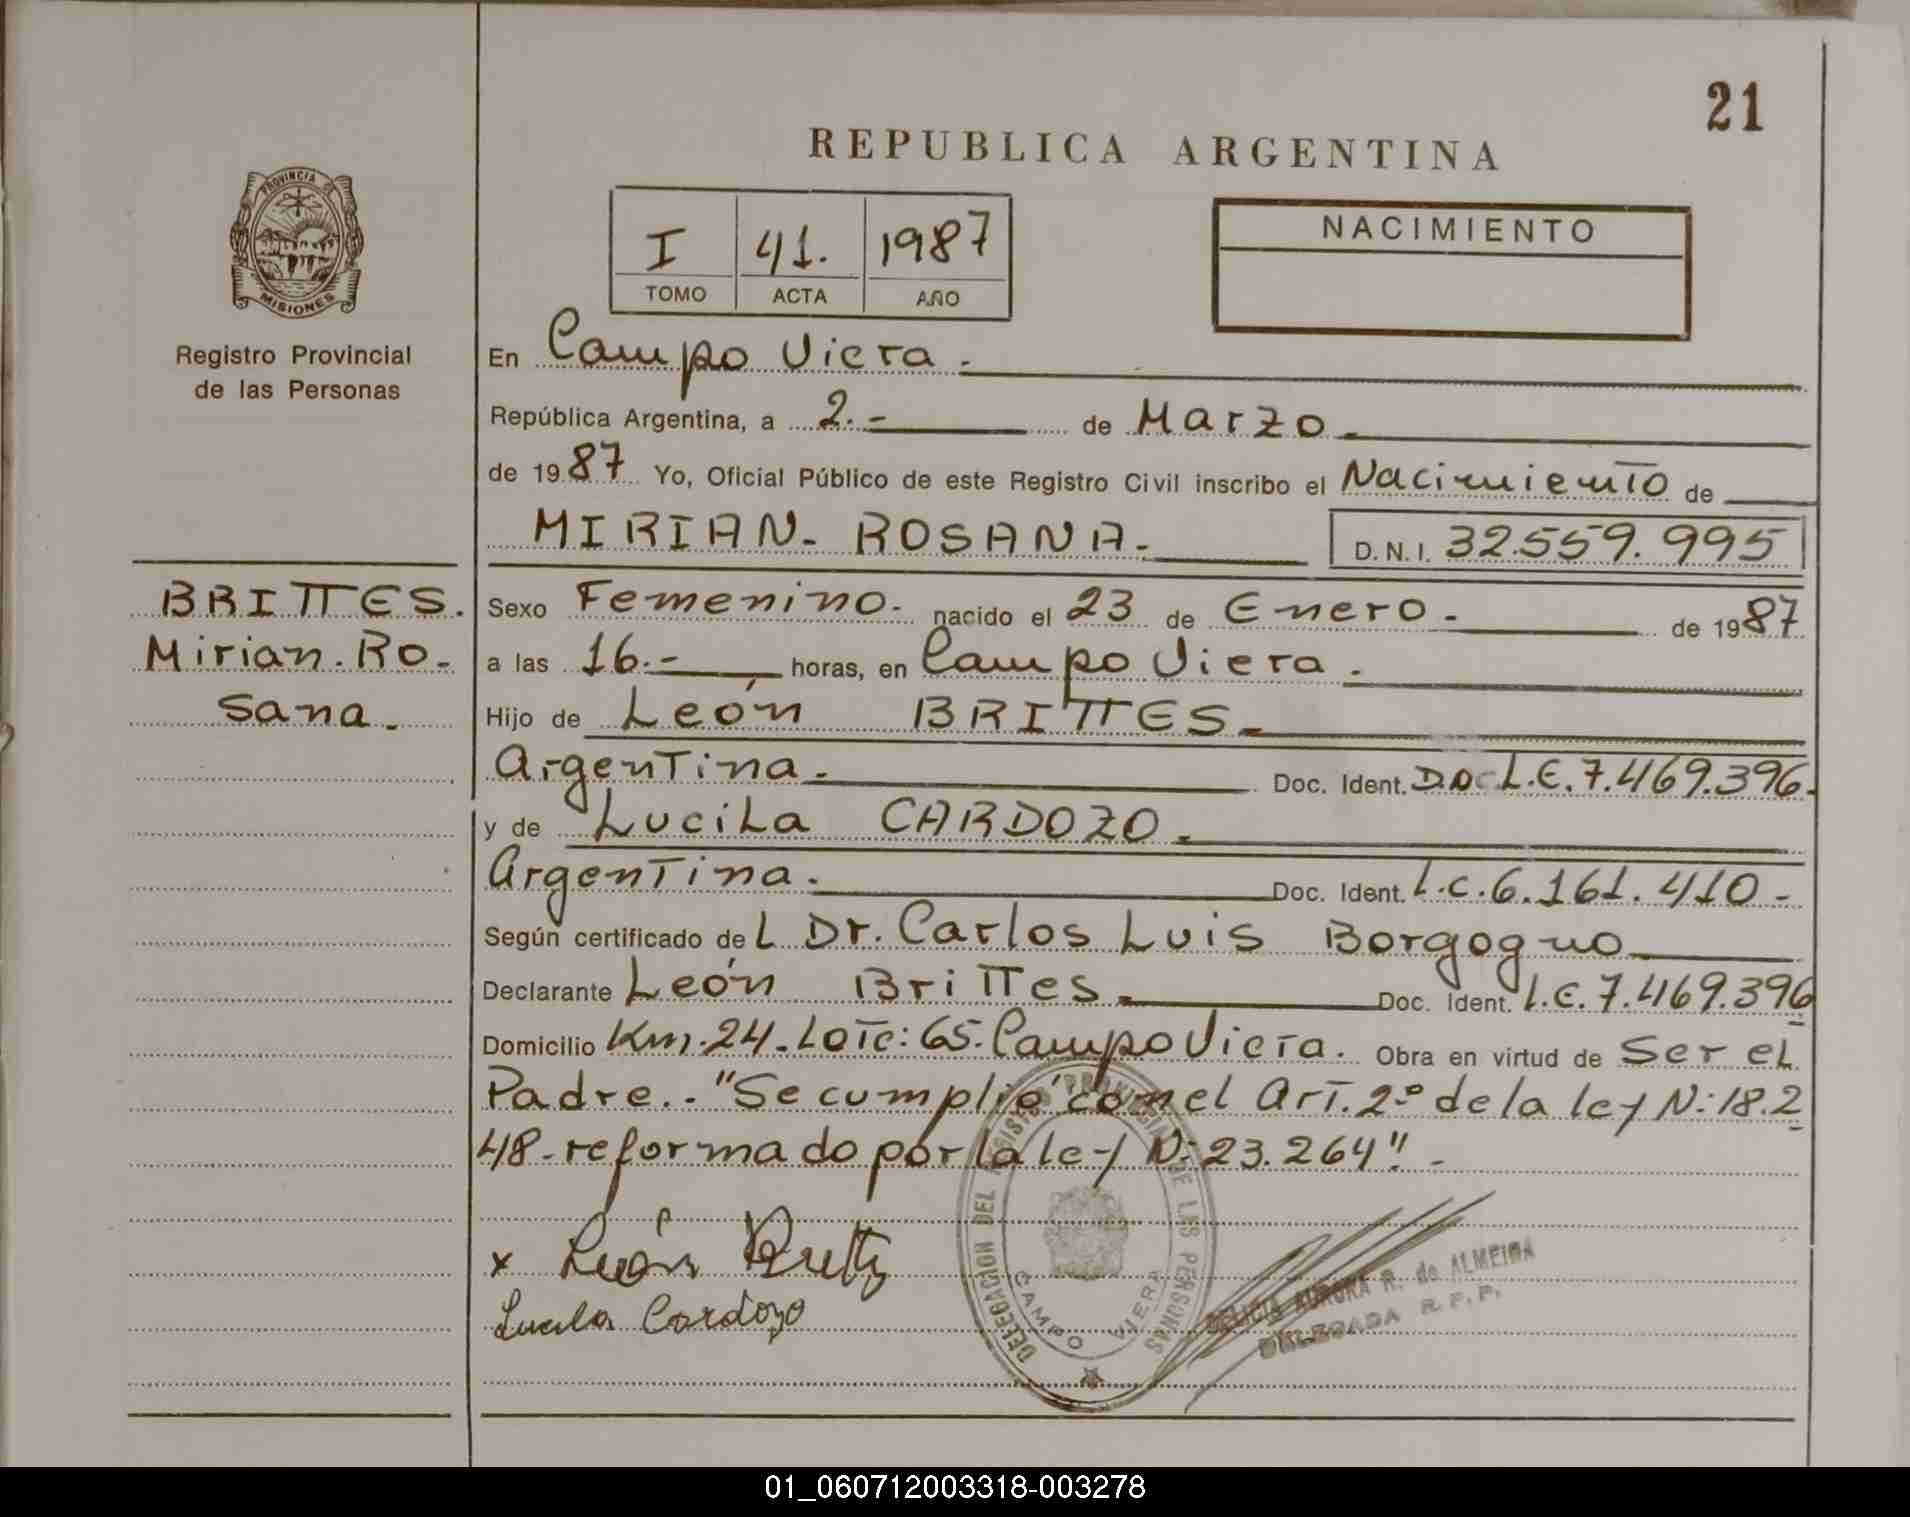 21
REPUBLICA ARGENTINA
PROVINCIA DE
MISIONES
Registro Provincial
de las Personas
I 41. 1987
TOMO ACTA AÑO
NACIMIENTO
En Campo Viera.
República Argentina, a 2.- de Marzo.
de 1987 Yo, Oficial Público de este Registro Civil inscribo el Nacimiento de
MIRIAN. ROSANA.- D.N.I. 32.559.995
BRITTES.
Mirian. Ro-
sana.
Sexo Femenino. nacido el 23 de Enero. de 1987
a las 16.- horas, en Campo Viera.
Hijo de León BRITTES.
Argentina. Doc. Ident. L.E. 7.469.396.
y de Lucila CARDOZO.
Argentina. Doc. Ident. L.C. 6.161.410-
Según certificado del Dr. Carlos Luis Borgogno
Declarante León Brittes Doc. Ident. L.E. 7.469.396
Domicilio Km. 24. Lote: 65. Campo Viera. Obra en virtud de Ser el
Padre.- "Se cumplió con el Art. 2º de la ley N: 18.2
48-reformado por la ley N: 23.264".-
x León Britte
Lucila Cardozo
DELEGACION DEL REGISTRO PROVINCIAL DE LAS PERSONAS
CAMPO VIERA
DELICIA AURORA R. de ALMEIDA
DELEGADA R. P. P.
01_060712003318-003278